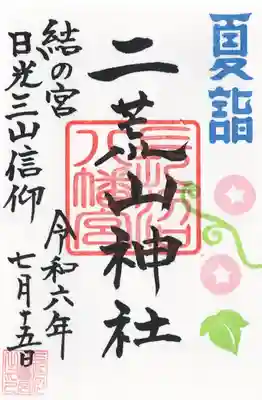 夏詣
二荒山神社
結の宮
日光三山信仰
令和六年
七月十五日